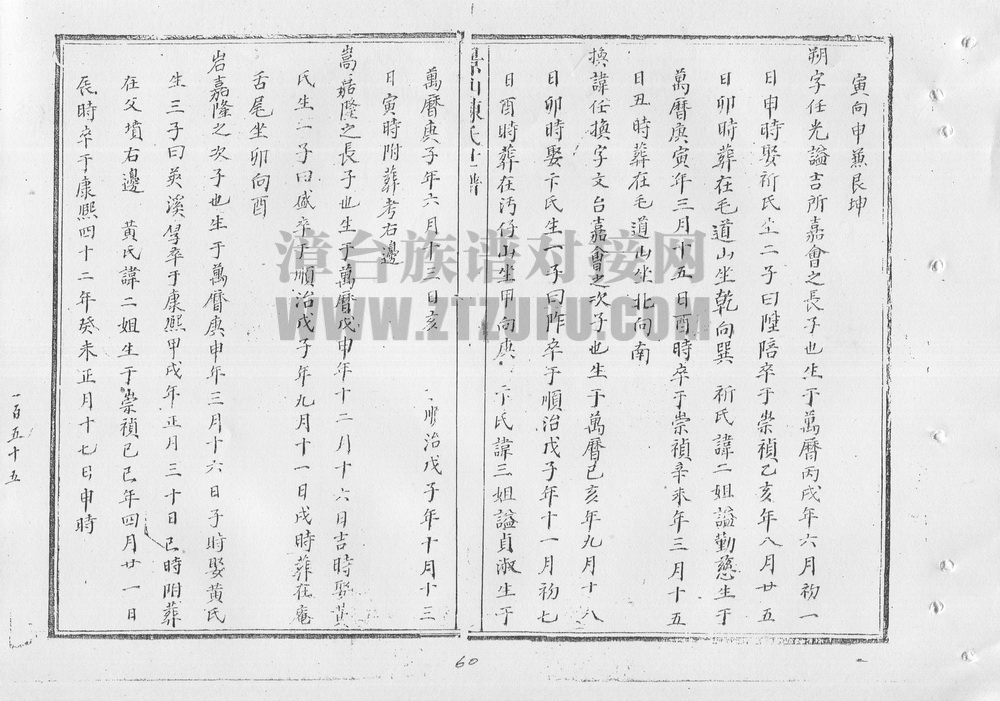 寅向申兼艮坤
朔字任光謚吉所嘉會之長子也生于萬曆丙戌年六月初一
日申時娶祈氏生二子曰陞陪卒于崇禎乙亥年八月廿五
日卯時葬在毛道山坐乾向巽 祈氏諱二姐謚勤慈生于
萬曆庚寅年三月十五日酉時卒于崇禎辛未年三月十五
日丑時葬在毛道山坐北向南
換諱任換字文台嘉會之次子也生于萬曆己亥年九月十八
日卯時娶卞氏生一子曰昨卒于順治戊子年十一月初七
日酉時葬在汚仔山坐甲向庚 卞氏諱三姐謚貞淑生于
陳氏
萬曆庚子年六月十三日亥 順治戊子年十月十三
日寅時附葬考右邊
嵩嘉隆之長子也生于萬曆戊申年十二月十六日吉時娶黃
氏生二子曰盛卒于順治戊子年九月十一日戌時葬在庵
舌尾坐卯向酉
岩嘉隆之次子也生于萬曆庚申年三月十六日子時娶黃氏
生三子曰 溪 卒于康熙甲戌年正月三十日巳時附葬
在父墳右邊 黃氏諱二姐生于崇禎己巳年四月廿一日
辰時卒于康熙四十二年癸未正月十七日申時
一百五十五
60
漳台族谱对接网
WWW.ZTZUPU.COM